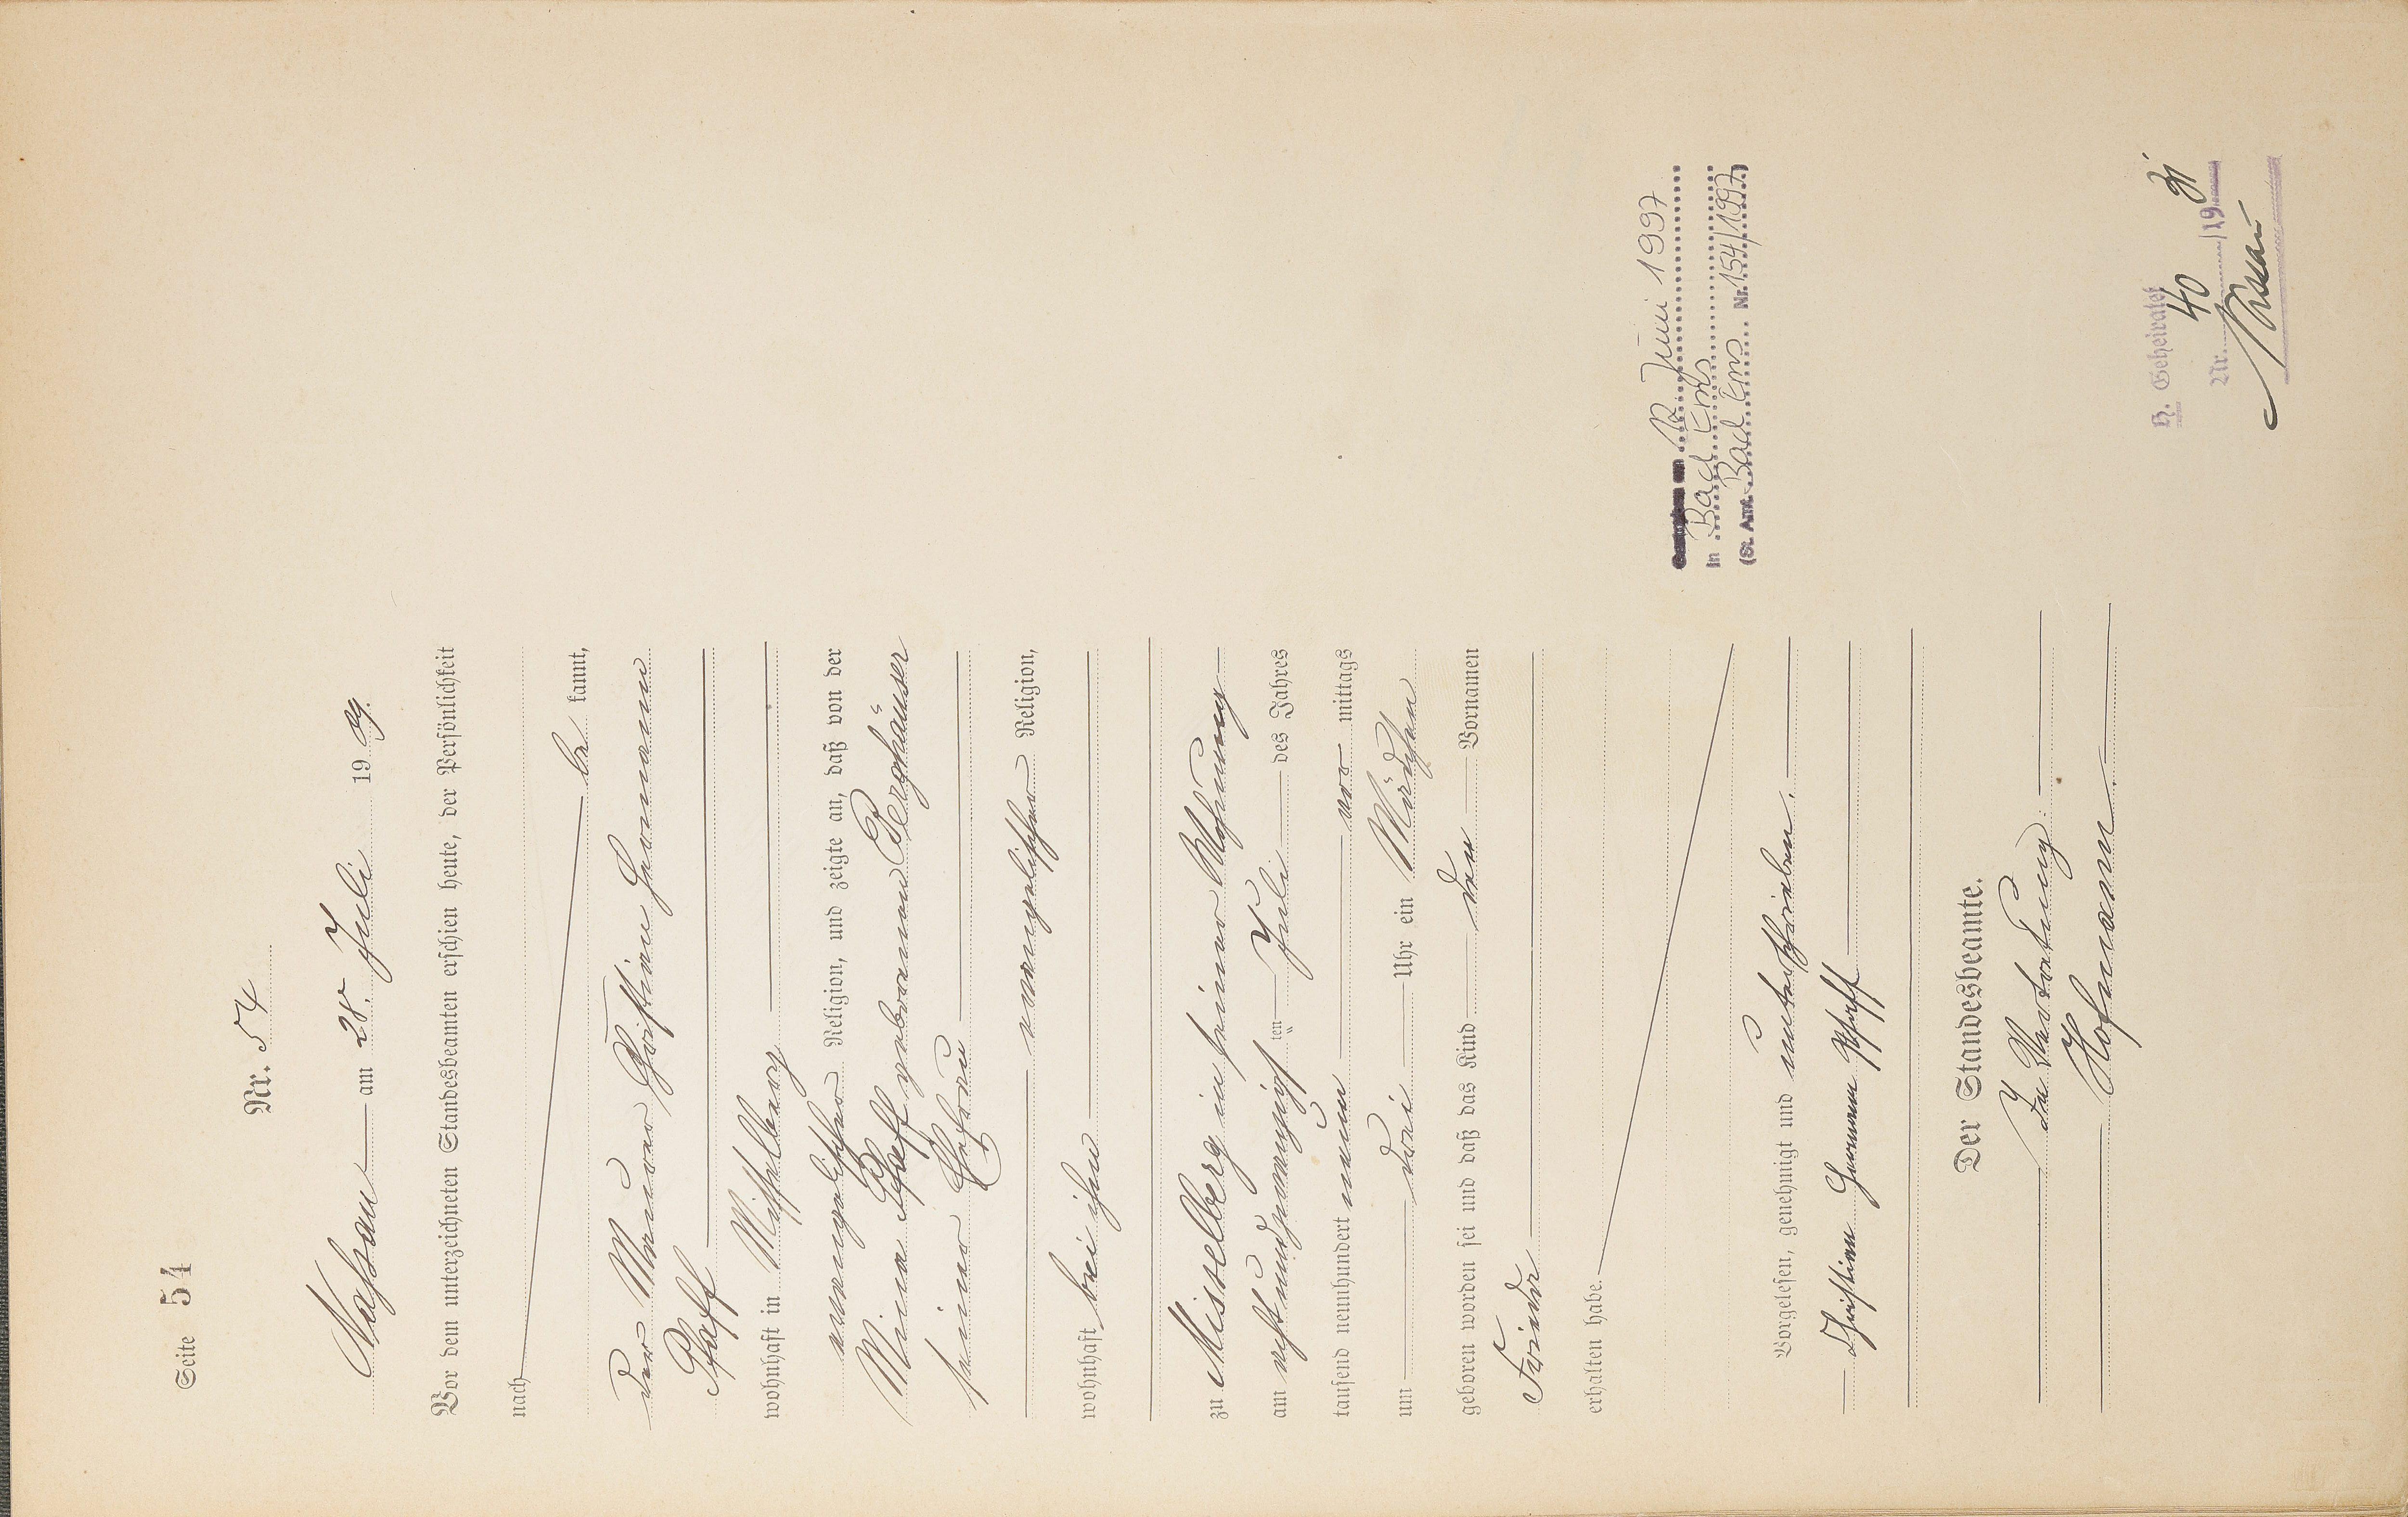 Seite 54
Nr. 54
Nassau am 28. Juli 19 09.
Vor dem unterzeichneten Standesbeamten erschien heute, der Persönlichkeit
nach
be kannt,
der Maurer Christian Hermann
Pfaff
wohnhaft in Misselberg
evangelischer Religion, und zeigte an, daß von der
Mina Pfaff geborenen Berghäuser
seiner Ehefrau
evangelischer Religion,
wohnhaft bei ihm
zu Misselberg in seiner Wohnung
am achtundzwanzigsten Juli des Jahres
tausend neunhundert neun vor mittags
um drei Uhr ein Mädchen
geboren worden sei und daß das Kind den Vornamen
Frieda
erhalten habe.
Vorgelesen, genehmigt und unterschrieben.
Christian Hermann Pfaff
Der Standesbeamte.
In Vertretung:
Hofmann
Gestorben am 12. Juni 1997
in Bad Ems
(St. Amt. Bad Ems Nr. 154/1997)
H. Geheiratet
Nr. 40 /19 31
Nassau